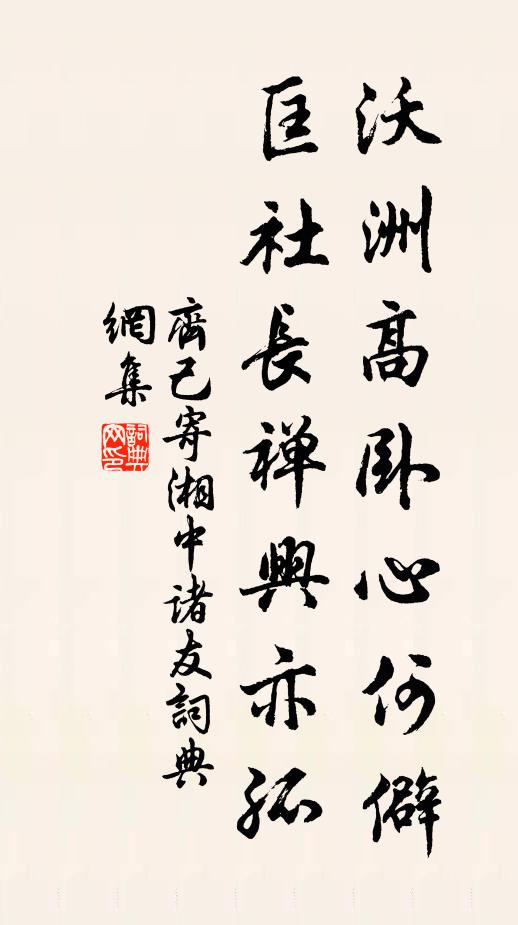 沃洲高卧心何僻
匡社長禅興亦孤
齊己寄湘中诸友詞典
網集
詞典
网印